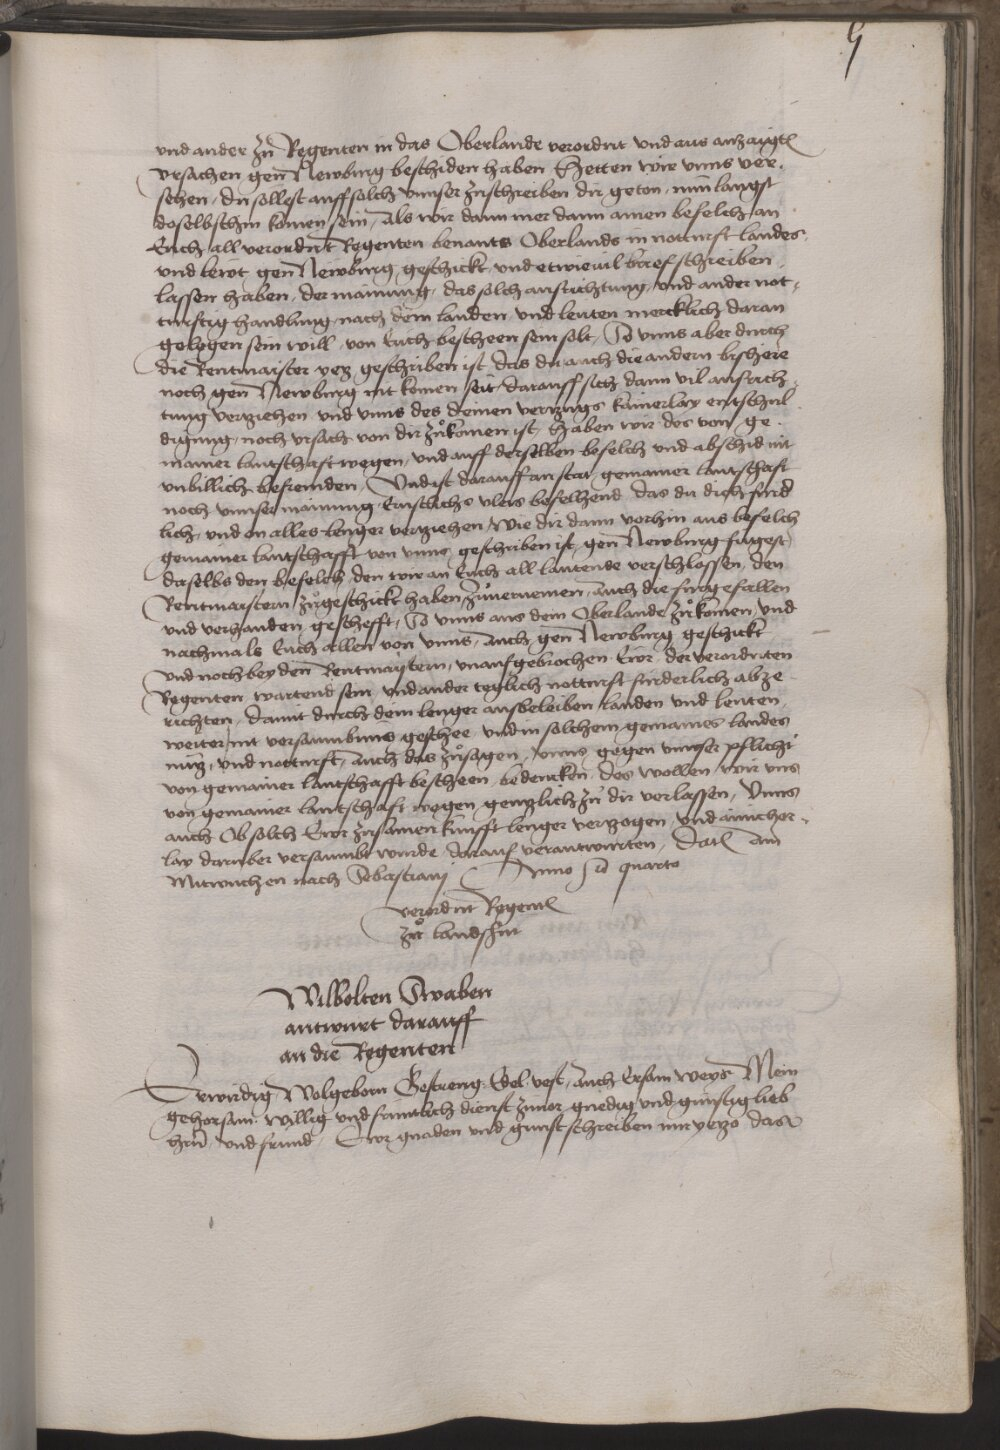 9
und ander zu Regenten in das Oberlande verordnt und aus anzaigten
ursachen gen Newburg beschiden haben Hetten wir unns ver-
sehen, du sollest auff solch unnser zuschreiben dir geton, nun langst
doselbsthin komen sein, Als wir dann mer dann ainen befelch an
Euch all verordnnt Regenten benants Oberlands in notturft landes
und lewt gen Newburg geschickt, und etwievil brief schreiben
lassen haben, der mainung, das solch ausrichtung, und ander not-
turftig handlung, nach dem landen und leuten mercklich daran
gelegen sein will, von Euch bescheen sein solt, So unns aber durch
die Rentmaister yetz geschriben ist, das du auch die andern bishere
noch gen Newburg nit komen seit, darauff sich dann vil ausrich-
tung verziehen und unns des deinen verzugs kainerlay entschul-
digung, noch ursach von dir zukomen ist, Haben wir des von ge-
mainer lantschaft wegen, und auff derselben befelch und abschid nit
unbillich befremden, Und ist darauff an stat gemainer lantschaft
noch unnser mainung, Ernstlichs vleis befelhend, das du dich furder-
lich, und on alles lenger verziehen, Wie dir dann vorhin aus befelch
gemainer lantschafft von unns geschriben ist, gen Newburg fugest,
daselbs den befelch, den wir an Euch all lautende verschlossen, den
Rentmaistern zugeschickt haben, zuvernemen, auch die furgefallen
und verhanden geschefft, So unns aus dem Oberlande zukomen, und
nachmals Euch allen von unns, auch gen Newburg geschickt
und noch bey den Rentmaystern, unaufgebrochen Ewr der verordnten
Regenten wartend sein, und ander teglich notturft furderlich abze-
richten, damit durch dein lenger ausbeleiben landen und leuten,
weiter nit versaumbnus geschee, und in solchem gemaines landes
nutz, und notturft, auch das zusagen, unns gegen unnser pflicht
von gemainer lantschafft bescheen, bedencken, Des wollen wir uns
von gemainer lantschaft wegen genntzlich zu dir verlassen, Unns
auch Ob solch Ewr zusamenkunfft lenger verzogen, und ainicher-
lay darunber versaumbt wurde, darauf verantwurten, Datum am
Mitwuchen nach Sebastiani Anno &c quarto
verordnt Regenten
zu landshut
Wilbolten Swaben
antwurt darauff
an die Regenten
Erwirdig Wolgeborn Gestreng, Edel, vest, auch Ersam weys Mein
gehorsam willig und fruntlich dienst zuvor gnedig und gunstig lieb
hern, und frund, Ewr gnaden und gunst schreiben mir yetzo das